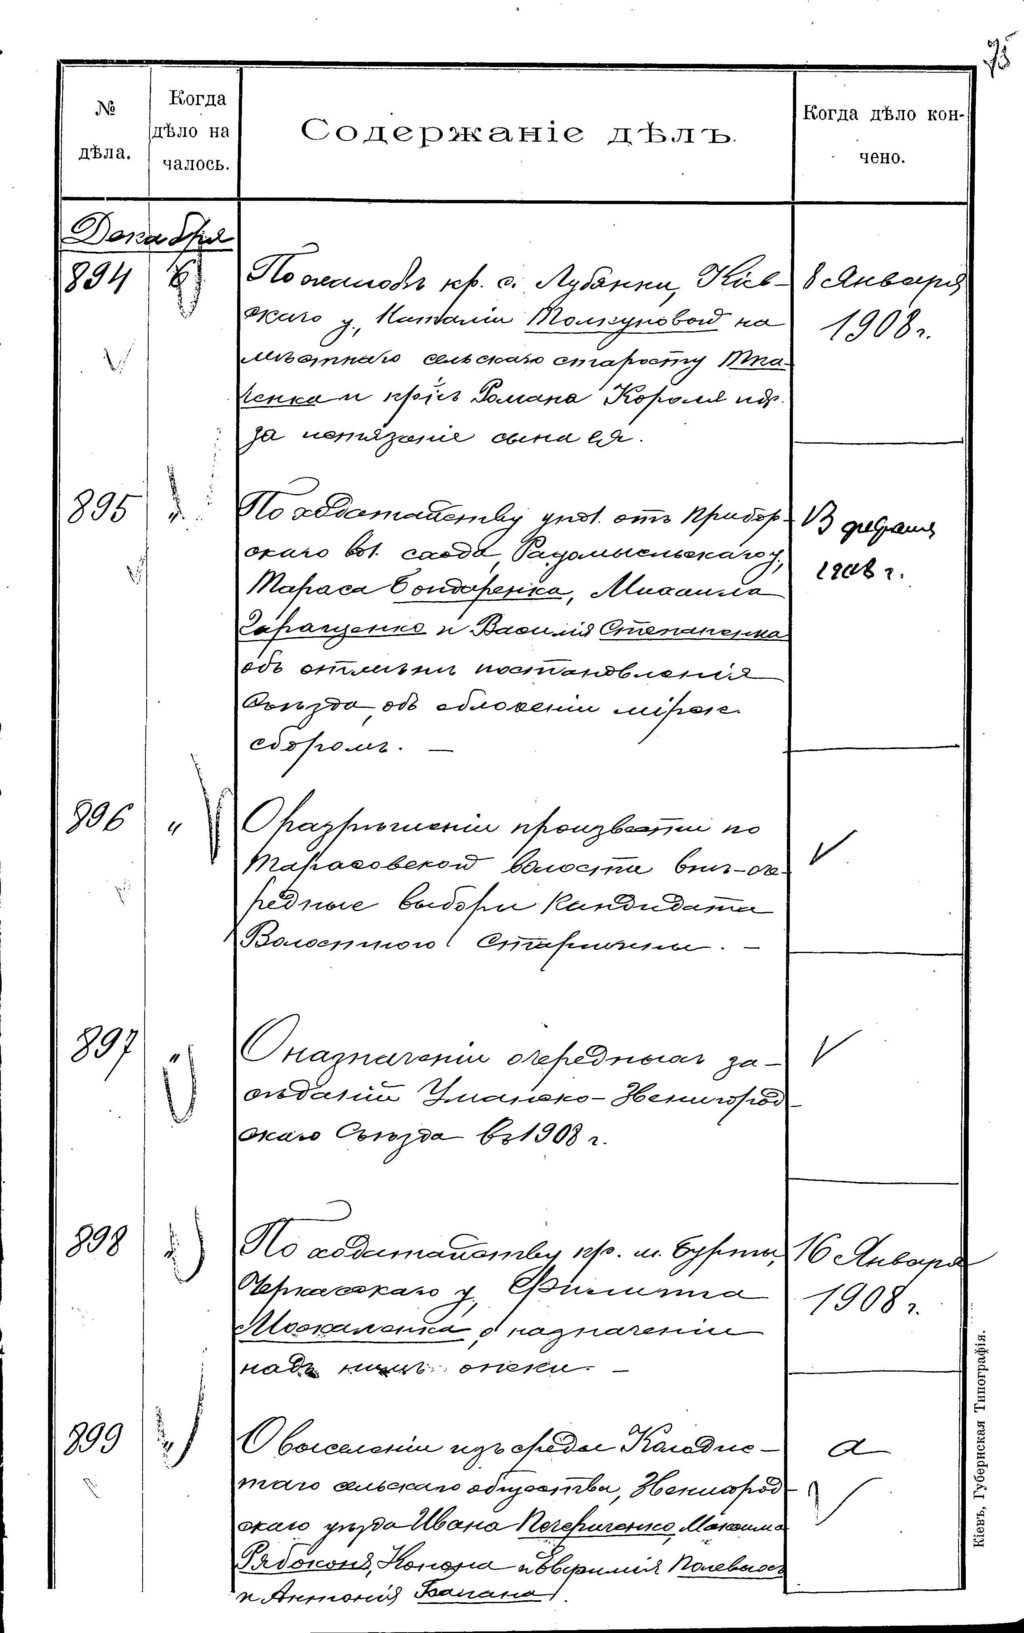 75
№ дѣла.
Когда дѣло на чалось.
Содержаніе дѣлъ.
Когда дѣло кон- чено.
Декабря
894 6 По жалобѣ кр. с. Лубянки, Кіев- 8 Января
скаго у, Наталіи Толкуновой на 1908 г.
мѣстнаго сельскаго старосту Тка-
ченка и кр. Романа Короля
за истязаніе сына ея.
895 " По ходатайству упол. отъ Прибор- 13 февраля
скаго вол. схода, Радомысльскаго у, 1908 г.
Тараса Бондаренка, Михаила
Геращенко и Василія Степаненка
объ отмѣнѣ постановленія
Съѣзда, объ обложеніи мірск.
сборомъ. —
896 " О разрѣшеніи произвести по
Тарасовской волости внѣ-оче-
редные выборы Кандидата
Волостного Старшины. —
897 " О назначеніи очередныхъ за-
сѣданій Уманско-Звенигород-
скаго Съѣзда въ 1908 г.
898 " По ходатайству кр. м. Бурты, 16 Января
Черкасскаго у, Филиппа 1908 г.
Москаленка, о назначеніи
надъ нимъ опеки. —
899 " О выселеніи изъ среды Колодис-
таго сельскаго общества, Звенигород-
скаго уѣзда Ивана Печериченко, Максима
Рябоконя, Конона и Евфимія Полевыхъ
и Антонія Балана.
Кіевъ, Губернская Типографія.